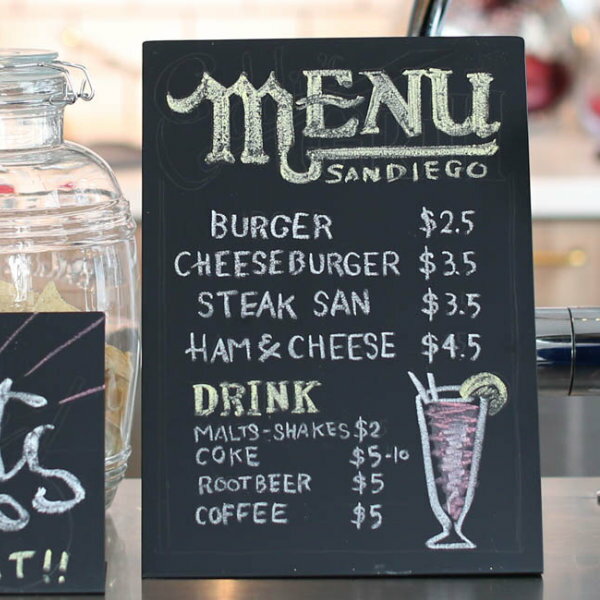 MENU
SANDIEGO
BURGER $2.5
CHEESEBURGER $3.5
STEAK SAN $3.5
HAM & CHEESE $4.5
DRINK
MALTS-SHAKES $2
COKE $5-10
ROOTBEER $5
COFFEE $5
T!!